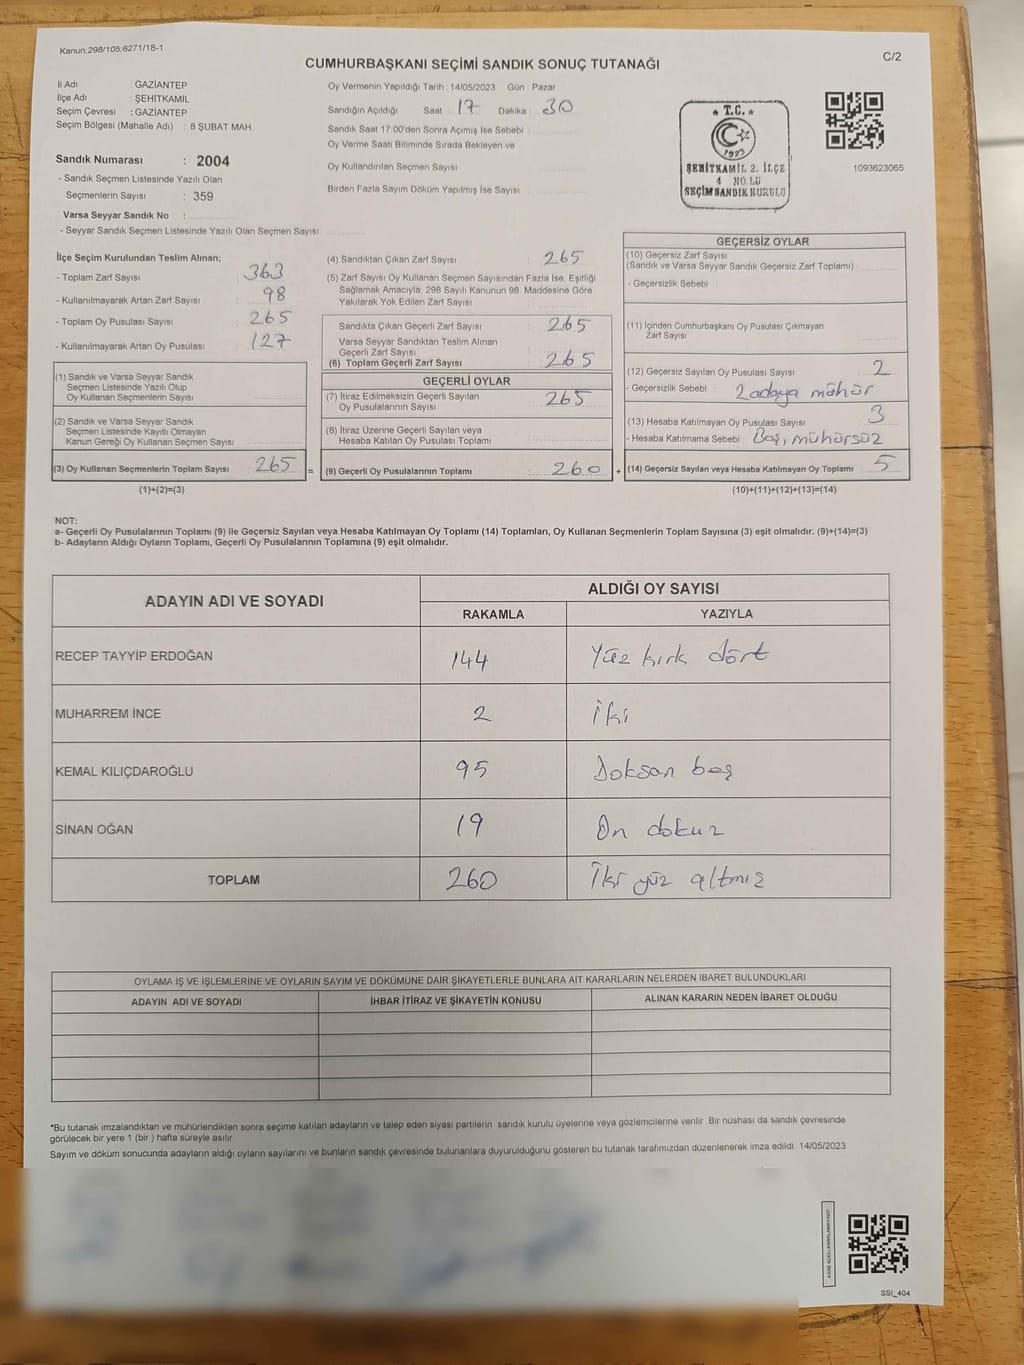 Kanun:298/105;6271/18-1
C/2
CUMHURBAŞKANI SEÇİMİ SANDIK SONUÇ TUTANAĞI
İl Adı : GAZİANTEP
İlçe Adı : ŞEHİTKAMİL
Seçim Çevresi : GAZİANTEP
Seçim Bölgesi (Mahalle Adı) : 8 ŞUBAT MAH.
Sandık Numarası : 2004
- Sandık Seçmen Listesinde Yazılı Olan
Seçmenlerin Sayısı : 359
Varsa Seyyar Sandık No :
- Seyyar Sandık Seçmen Listesinde Yazılı Olan Seçmen Sayısı:
Oy Vermenin Yapıldığı Tarih : 14/05/2023 Gün : Pazar
Sandığın Açıldığı Saat : 17 Dakika : 30
Sandık Saat 17:00'den Sonra Açımış İse Sebebi :
Oy Verme Saati Bitiminde Sırada Bekleyen ve
Oy Kullandırılan Seçmen Sayısı :
Birden Fazla Sayım Döküm Yapılmış İse Sayısı :
T.C.
1923
ŞEHİTKAMİL 2. İLÇE
4 NO.LU
SEÇİM SANDIK KURULU
1093623065
İlçe Seçim Kurulundan Teslim Alınan;
- Toplam Zarf Sayısı : 363
- Kullanılmayarak Artan Zarf Sayısı : 98
- Toplam Oy Pusulası Sayısı : 265
- Kullanılmayarak Artan Oy Pusulası : 127
(1) Sandık ve Varsa Seyyar Sandık
Seçmen Listesinde Yazılı Olup
Oy Kullanan Seçmenlerin Sayısı :
(2) Sandık ve Varsa Seyyar Sandık
Seçmen Listesinde Kayıtlı Olmayan
Kanun Gereği Oy Kullanan Seçmen Sayısı :
(3) Oy Kullanan Seçmenlerin Toplam Sayısı : 265
(1)+(2)=(3)
(4) Sandıktan Çıkan Zarf Sayısı : 265
(5) Zarf Sayısı Oy Kullanan Seçmen Sayısından Fazla İse, Eşitliği
Sağlamak Amacıyla, 298 Sayılı Kanunun 98. Maddesine Göre
Yakılarak Yok Edilen Zarf Sayısı :
Sandıkta Çıkan Geçerli Zarf Sayısı : 265
Varsa Seyyar Sandıktan Teslim Alınan
Geçerli Zarf Sayısı :
(6) Toplam Geçerli Zarf Sayısı : 265
GEÇERLİ OYLAR
(7) İtiraz Edilmeksizin Geçerli Sayılan
Oy Pusulalarının Sayısı : 265
(8) İtiraz Üzerine Geçerli Sayılan veya
Hesaba Katılan Oy Pusulası Toplamı :
= (9) Geçerli Oy Pusulalarının Toplamı : 260
GEÇERSİZ OYLAR
(10) Geçersiz Zarf Sayısı
(Sandık ve Varsa Seyyar Sandık Geçersiz Zarf Toplamı) :
- Geçersizlik Sebebi :
(11) İçinden Cumhurbaşkanı Oy Pusulası Çıkmayan
Zarf Sayısı :
(12) Geçersiz Sayılan Oy Pusulası Sayısı : 2
- Geçersizlik Sebebi : 2 adaya mühür
(13) Hesaba Katılmayan Oy Pusulası Sayısı : 3
- Hesaba Katılmama Sebebi : Boş, mühürsüz
+ (14) Geçersiz Sayılan veya Hesaba Katılmayan Oy Toplamı : 5
(10)+(11)+(12)+(13)=(14)
NOT:
a- Geçerli Oy Pusulalarının Toplamı (9) ile Geçersiz Sayılan veya Hesaba Katılmayan Oy Toplamı (14) Toplamları, Oy Kullanan Seçmenlerin Toplam Sayısına (3) eşit olmalıdır. (9)+(14)=(3)
b- Adayların Aldığı Oyların Toplamı, Geçerli Oy Pusulalarının Toplamına (9) eşit olmalıdır.
ADAYIN ADI VE SOYADI
ALDIĞI OY SAYISI
RAKAMLA YAZIYLA
RECEP TAYYİP ERDOĞAN 144 Yüz kırk dört
MUHARREM İNCE 2 İki
KEMAL KILIÇDAROĞLU 95 Doksan beş
SİNAN OĞAN 19 On dokuz
TOPLAM 260 İki yüz altmış
OYLAMA İŞ VE İŞLEMLERİNE VE OYLARIN SAYIM VE DÖKÜMÜNE DAİR ŞİKAYETLERLE BUNLARA AİT KARARLARIN NELERDEN İBARET BULUNDUKLARI
ADAYIN ADI VE SOYADI İHBAR İTİRAZ VE ŞİKAYETİN KONUSU ALINAN KARARIN NEDEN İBARET OLDUĞU
*Bu tutanak imzalandıktan ve mühürlendikten sonra seçime katılan adayların ve talep eden siyasi partilerin sandık kurulu üyelerine veya gözlemcilerine verilir. Bir nüshası da sandık çevresinde
görülecek bir yere 1 (bir ) hafta süreyle asılır.
Sayım ve döküm sonucunda adayların aldığı oyların sayılarını ve bunların sandık çevresinde bulunanlara duyurulduğunu gösteren bu tutanak tarafımızdan düzenlenerek imza edildi. 14/05/2023
SSI_404